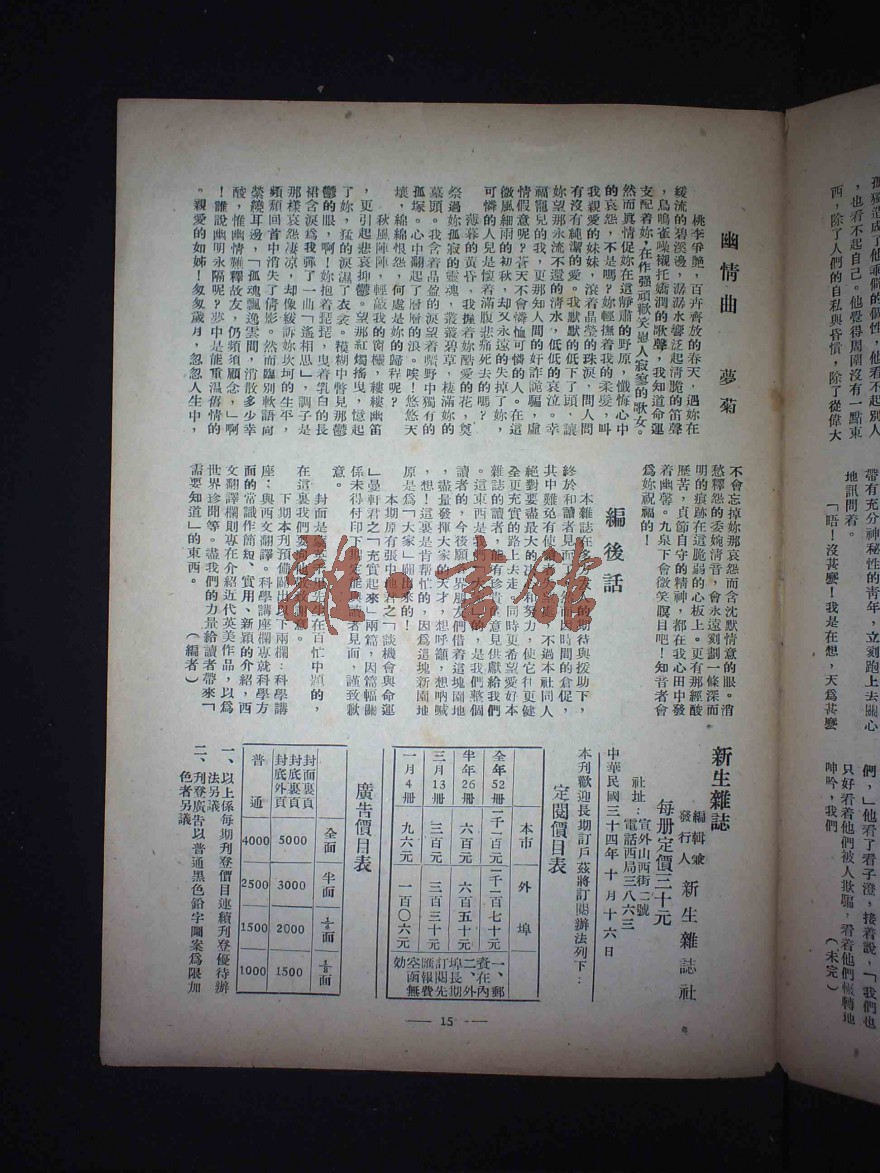 幽情曲　夢菊
桃李爭艷，百卉齊放的春天，遇妳在
緩流的碧溪邊，潺潺水響泛起清脆的笛聲
，鳥鳴雀噪襯托嬌潤的歌聲，我知道命運
支配着妳，在作强頑歡笑慰人寂寥的歌女。
然而眞情促妳在這靜肅的野原，懺悔心中
的哀怨，不是嗎？妳輕撫着我的柔髮，叫
我親愛的妹妹，滾着晶瑩的珠淚，問人間
有沒有純潔的愛。我默默的低下了頭，讓
妳望那永流不還的清水，低低的哀泣。幸
福寵兒的我，更那知人間的奸詐詭騙，虛
情假意呢？蒼天不會憐恤可憐的人。在這
微風細雨的初秋，却又永遠的失掉了妳，
可憐的人兒是懷着滿腹悲痛死去的嗎？
薄暮的黃昏，我握着妳酷愛的花，奠
祭過妳孤寂的靈魂，叢叢碧草，棲滿妳的
墓頭。我含着晶盈的淚望着曠野中獨有的
孤塚。心中翻起了層層的浪。唉！悠悠天
壤，綿綿恨怨，何處是妳的歸程呢？
秋風陣陣，輕敲我的窗櫺，縷縷幽笛
，更引起悲哀抑鬱。望那紅燭搖曳，憶起
了妳，猛的淚濕了衣裳。模糊中瞥見那鬱
鬱的眼，啊！妳抱着琵琶，曳着乳白的長
裙含淚爲我彈了一曲「遙相思」，調子是
那樣哀怨凄凉，却像綫訴妳坎坷的生平，
頻頻回首中消失了倩影。然而臨別軟語向
縈繞耳邊，「孤魂飄逸雲間，消散多少幸
酸，惟幽情難釋故友，仍須須顧念，」啊
！誰說幽明永隔呢？夢中是能重溫舊情的
。親愛的如姊！匆匆歲月，忽忽人生中，
不會忘掉妳那哀怨而含沈默情意的眼。消
愁釋怨的委婉清音，會永遠刻劃一條深而
明的痕跡在這脆弱的心板上。更有那經酸
歷苦，貞節自守的精神，都在我心田中發
着幽馨。九泉下會微笑瞑目吧！知音者會
爲妳祝福的！
編後話
本雜誌在
的期待與援助下，
終於和讀者見面了
因時間的倉促，
其中難免有使
不過本社同人
絕對要盡最大的
和努力，使它往更健
全更充實的路上去走，同時更希望愛好本
雜誌的讀者，能有珍貴的意見供獻給我們
。這東西是
的，是我們整個
讀者的，今後願
界朋友們借着這塊園地
，盡量發揮大家的天才，想呼籲，想吶喊
，想！這裏是肯帮忙的，因爲這塊新園地
原是爲「大家」闢出來的！
本期原有張中他君之「談機會與命運
」曼軒君之「充實起來」兩篇，因篇幅關
係未得付印下期定能與讀者見面，謹致歉
意。
封面是
先生在百忙中題的，
在這裏我們要向他致
意。
下期本刊預備闢
以下兩欄：科學講
座：與西文翻譯。科學講座欄專就科學方
面的常識作簡短、實用、新穎的介紹，西
文翻譯欄則專在介紹近代英美作品，以爲
世界珍聞等。盡我們的力量給讀者帶來「
需要知道」的東西。　（編者）
新生雜誌
編輯兼
發行人　新生雜誌社
每册定價三十元
社址：宣外山西街二號
電話西局三八六三
中華民國三十四年十月十六日
本刊歡迎長期訂戶茲將訂閱辦法列下：
定閱價目表
本市　外埠
全年52册　一千一百元　一千一百七十元
半年26册　六百元　六百五十元
三月13册　三百元　三百三十元
一月4册　九六元　一百〇六元
一、郵
費在內
二、外
埠長期
訂閱先
匯報費
空函無
効
廣告價目表
全面　半面　¼面　⅛面
封面裏頁
封底裏頁
封底外頁　5000　3000　2000　1500
普通　4000　2500　1500　1000
一、以上係每期刊登價目連續刊登優待辦
法另議
二、刊登廣告以普通黑色鉛字圖案爲限加
色者另議
— 15 —
孤獨造成了他乖僻的個性，他看不起別人
，也看不起自己。他覺得周圍沒有一點東
西，除了人們的自私與昏慣，除了從偉大
帶有充分神秘性的靑年，立刻跑上去關心
地訊問着。
「唔！沒甚麼！我是在想，天爲甚麼
們，」他看了看子澄，接着說，「我們也
只好看着他們被人欺騙，看着他們輾轉地
呻吟，我們　（未完）
雜·書館